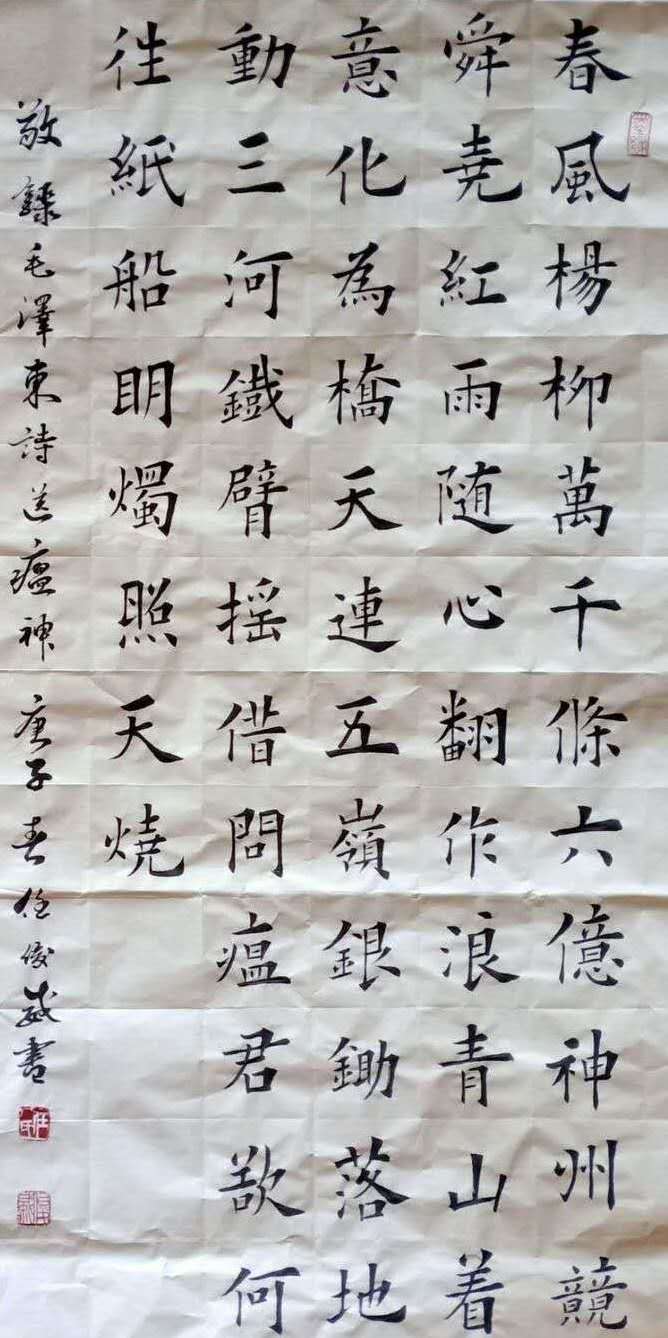 春風楊柳萬千條六億神州競
舜堯紅雨随心翻作浪青山着
意化為橋天連五嶺銀鋤落地
動三河鐵臂摇借問瘟君欲何
往紙船明燭照天燒
敬錄毛澤東詩送瘟神 庚子春任俊威書